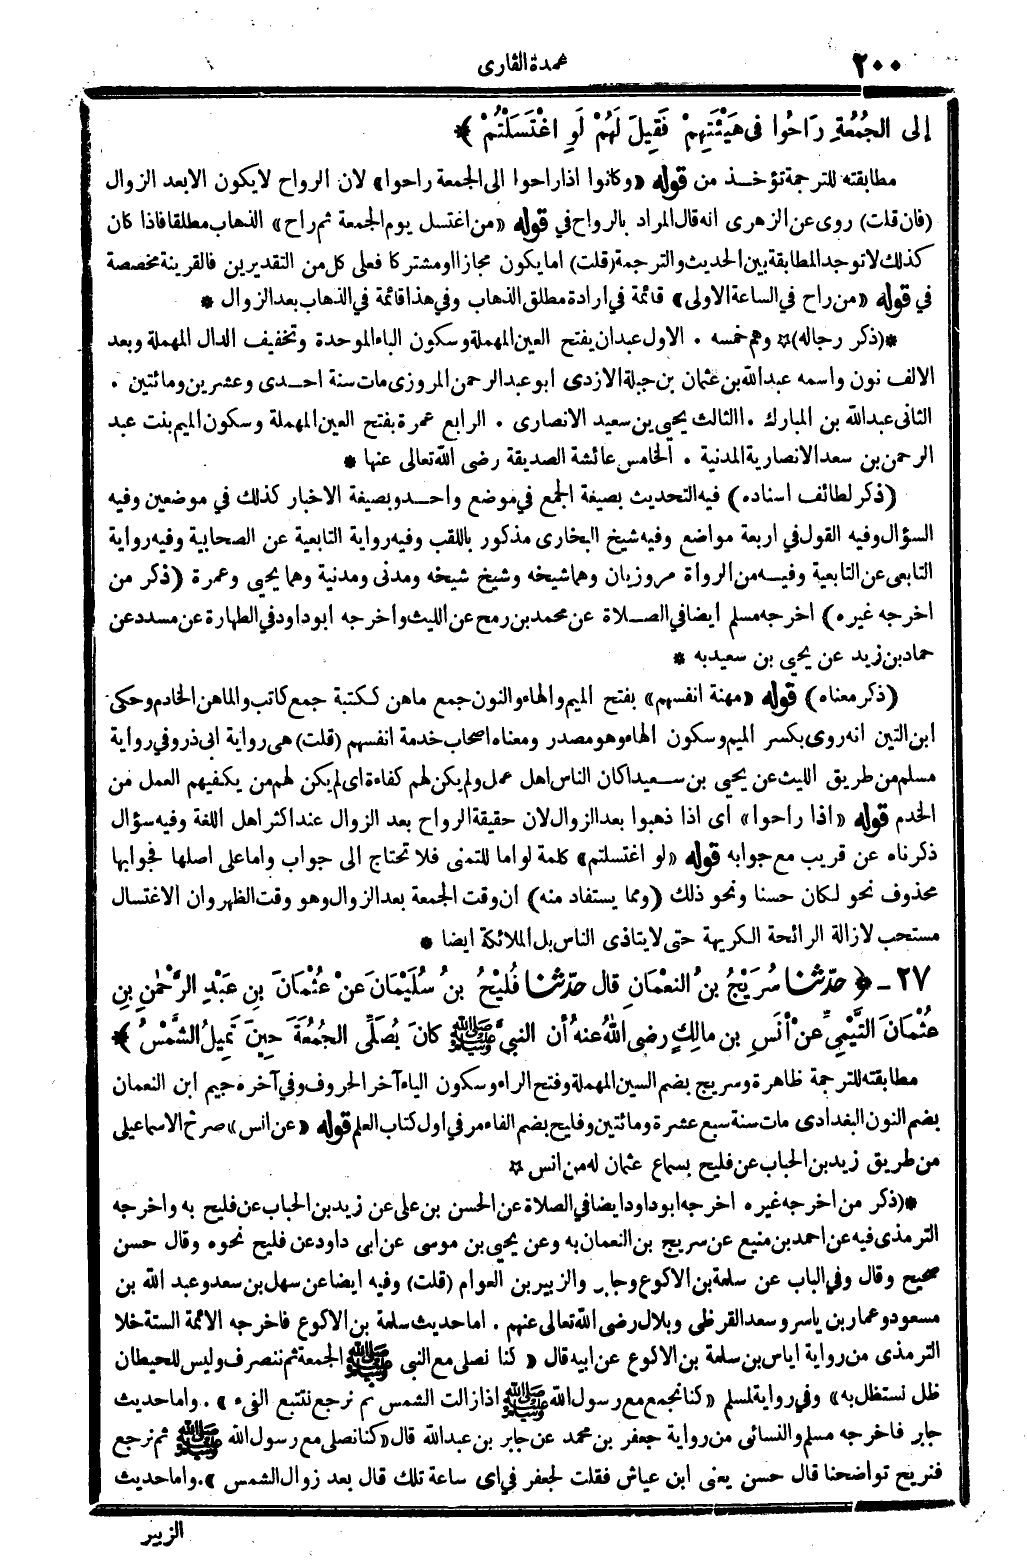 ٢٠٠
عمدة القارى
إلى الجُمُعَةِ رَاحُوا فى هَيْئَتِهِمْ فَقِيلَ لَهُمْ لَوِ اغْتَسَلْتُمْ ﴾
مطابقته للترجمة تؤخذ من قوله «وكانوا اذا راحوا الى الجمعة راحوا» لان الرواح لا يكون الا بعد الزوال
(فان قلت) روى عن الزهرى انه قال المراد بالرواح في قوله «من اغتسل يوم الجمعة ثم راح» الذهاب مطلقا فاذا كان
كذلك لا توجد المطابقة بين الحديث والترجمة (قلت) اما يكون مجازا او مشتركا فعلى كل من التقديرين فالقرينة مخصصة
في قوله «من راح في الساعة الاولى» قائمة في ارادة مطلق الذهاب وفي هذا قائمة في الذهاب بعد الزوال *
*(ذكر رجاله)* وهم خمسه . الاول عبدان بفتح العين المهملة وسكون الباء الموحدة وتخفيف الدال المهملة وبعد
الالف نون واسمه عبد الله بن عثمان بن جبلة الازدى ابو عبد الرحمن المروزى مات سنة احدى وعشرين ومائتين .
الثانى عبد الله بن المبارك . االثالث يحيى بن سعيد الانصارى . الرابع عمرة بفتح العين المهملة وسكون الميم بنت عبد
الرحمن بن سعد الانصارية المدنية . الخامس عائشة الصديقة رضى الله تعالى عنها *
(ذكر لطائف اسناده) فيه التحديث بصيغة الجمع في موضع واحد وبصيغة الاخبار كذلك في موضعين وفيه
السؤال وفيه القول في اربعة مواضع وفيه شيخ البخارى مذكور باللقب وفيه رواية التابعية عن الصحابية وفيه رواية
التابعى عن التابعية وفيه من الرواة مروزيان وهما شيخه وشيخ شيخه ومدنى ومدنية وهما يحيى وعمرة (ذكر من
اخرجه غيره) اخرجه مسلم ايضا في الصلاة عن محمد بن رمح عن الليث وأخرجه ابو داود في الطهارة عن مسدد عن
حماد بن زيد عن يحيى بن سعيد به *
(ذكر معناه) قوله «مهنة انفسهم» بفتح الميم والهاء والنون جمع ماهن ككتبة جمع كاتب والماهن الخادم وحكى
ابن التين انه روى بكسر الميم وسكون الهاء وهو مصدر ومعناه اصحاب خدمة انفسهم (قلت) هى رواية ابى ذر وفي رواية
مسلم من طريق الليث عن يحيى بن سعيد اكان الناس اهل عمل ولم يكن لهم كفاءة اى لم يكن لهم من يكفيهم العمل من
الخدم قوله «اذا راحوا» اى اذا ذهبوا بعد الزوال لان حقيقة الرواح بعد الزوال عند اكثر اهل اللغة وفيه سؤال
ذكرناه عن قريب مع جوابه قوله «لو اغتسلتم» كلمة لو اما للتمنى فلا تحتاج الى جواب واما على اصلها فجوابها
محذوف نحو لكان حسنا ونحو ذلك (ومما يستفاد منه) ان وقت الجمعة بعد الزوال وهو وقت الظهر وان الاغتسال
مستحب لازالة الرائحة الكريهة حتى لا يتاذى الناس بل الملائكة ايضا *
٢٧ - ﴿ حدّثنا سُرَيْجُ بنُ النعْمَانِ قال حدّثنا فُلَيْحُ بنُ سُلَيْمَانَ عنْ عُثْمَانَ بنِ عَبْدِ الرَّحْمٰنِ بنِ
عُثْمَانَ التَّيْمِيِّ عنْ أنَسِ بنِ مالِكٍ رضى اللهُ عنهُ أن النبيَّ ﷺ كانَ يُصَلِّى الجُمُعَةَ حِينَ تَمِيلُ الشَّمْسُ ﴾ *
مطابقته للترجمة ظاهرة وسريج بضم السين المهملة وفتح الراء وسكون الياء آخر الحروف وفي آخره جيم ابن النعمان
بضم النون البغدادى مات سنة سبع عشرة ومائتين وفليح بضم الفاء مر في اول كتاب العلم قوله «عن انس» صرح الاسماعيلى
من طريق زيد بن الحباب عن فليح بسماع عثمان له من انس *
*(ذكر من اخرجه غيره اخرجه ابو داود ايضا في الصلاة عن الحسن بن على عن زيد بن الحباب عن فليح به واخرجه
الترمذى فيه عن احمد بن منيع عن سريج بن النعمان به وعن يحيى بن موسى عن ابى داود عن فليح نحوه وقال حسن
صحيح وقال وفي الباب عن سلمة بن الاكوع وجابر والزبير بن العوام (قلت) وفيه ايضا عن سهل بن سعد وعبد الله بن
مسعود وعمار بن ياسر وسعد القرظى وبلال رضى الله تعالى عنهم . اما حديث سلمة بن الاكوع فاخرجه الائمة الستة خلا
الترمذى من رواية اياس بن سلمة بن الاكوع عن ابيه قال «كنا نصلى مع النبى ﷺ الجمعة ثم ننصرف وليس للحيطان
ظل نستظل به» وفي رواية لمسلم «كنا نجمع مع رسول الله ﷺ اذا زالت الشمس ثم نرجع نتتبع الفىء» . واما حديث
جابر فاخرجه مسلم والنسائى من رواية جعفر بن محمد عن جابر بن عبد الله قال «كنا نصلى مع رسول الله ﷺ ثم نرجع
فنريح نواضحنا قال حسن يعنى ابن عياش فقلت لجعفر في اى ساعة تلك قال بعد زوال الشمس» . واما حديث
الزبير